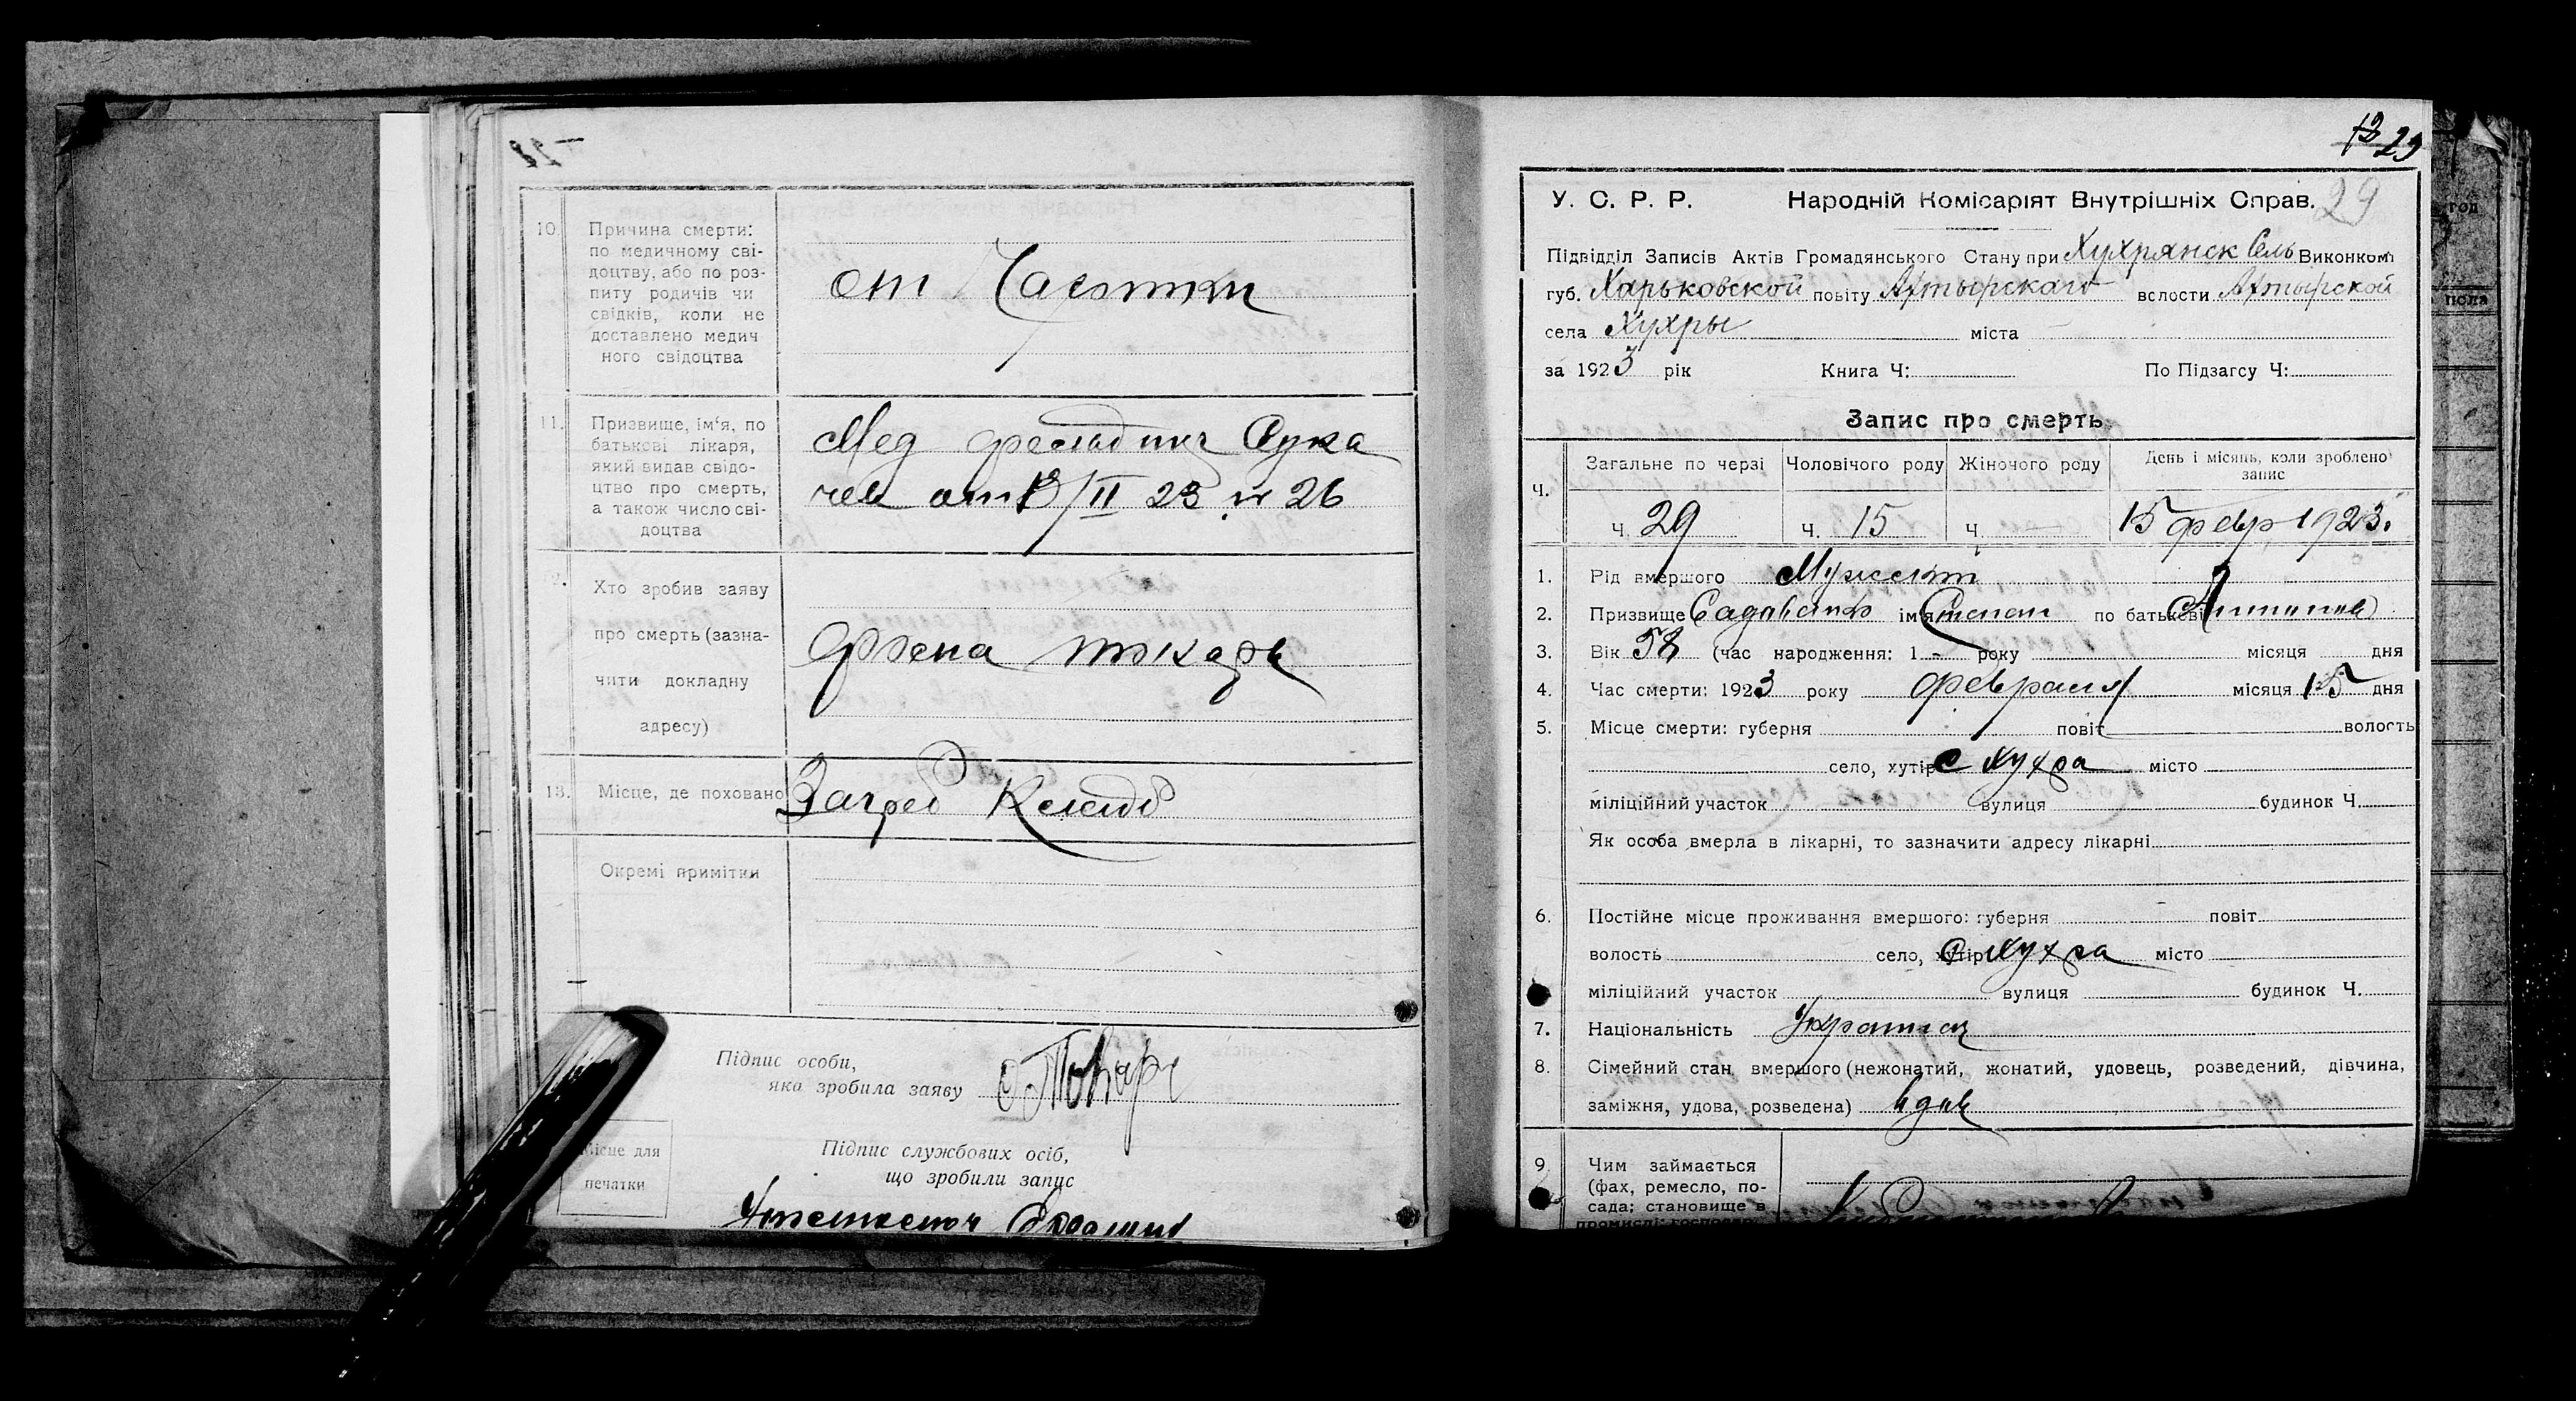 10.
Причина смерти:
по медичному сві-
доцтву, або по роз-
питу родичів чи
свідків, коли не
доставлено медич
ного свідоцтва
от
11.
Призвище, ім'я, по
батькові лікаря,
який видав свідо-
цтво про смерть,
а також число сві-
доцтва
Мед
от 13/II 23 № 26
Хто зробив заяву
про смерть (зазна-
чити докладну
адресу)
13.
Місце, де поховано
Окремі примітки
Підпис особи,
яка зробила заяву
Місце для
печатки
Підпис службових осіб,
що зробили запис
13 29
У. С. Р. Р. Народній Комісаріят Внутрішніх Справ. 29
Підвідділ Записів Актів Громадянського Стану при Хухрянск Сель Виконком
губ. Харьковской повіту Ахтырскаго волости Ахтырской
села Хухры міста
за 1923 рік Книга Ч: По Підзагсу Ч:
Запис про смерть
Ч. Загальне по черзі Чоловічого роду Жіночого роду День і місяць, коли зроблено запис
ч. 29 ч. 15 ч. — 15 февр 1923.
1. Рід вмершого Мужской
2. Призвище ім'я Степан по батькові
3. Вік 58 (час народження: 1 - року місяця дня
4. Час смерти: 1923 року февраля місяця 15 дня
5. Місце смерти: губерня повіт волость
село, хутір с Хухра місто
міліційний участок вулиця будинок Ч.
Як особа вмерла в лікарні, то зазначити адресу лікарні
6. Постійне місце проживання вмершого: губерня повіт
волость село, хутір с Хухра місто
міліційний участок вулиця будинок Ч.
7. Національність
8. Сімейний стан вмершого (нежонатий, жонатий, удовець, розведений, дівчина,
заміжня, удова, розведена) вдов
9. Чим займається
(фах, ремесло, по-
сада; становище в